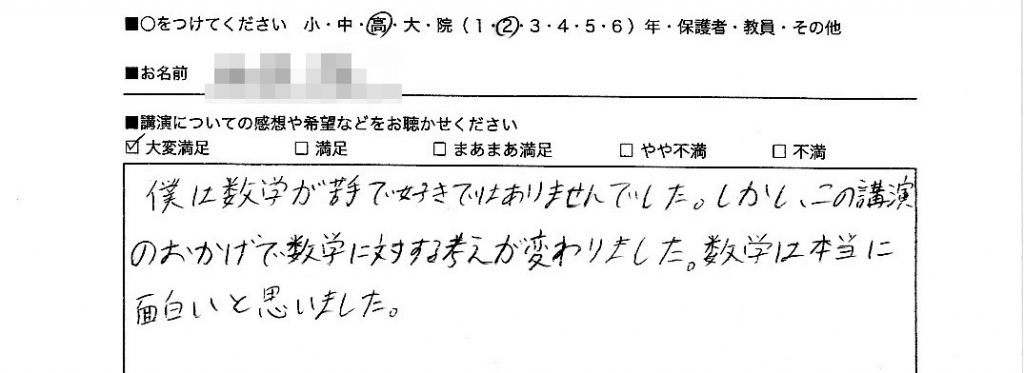 ■○をつけてください 小・中・高・大・院（1・2・3・4・5・6）年・保護者・教員・その他
■お名前
■講演についての感想や希望などをお聴かせください
☑ 大変満足 □ 満足 □ まあまあ満足 □ やや不満 □ 不満
僕は数学が苦手で好きではありませんでした。しかし、この講演
のおかげで数学に対する考えが変わりました。数学は本当に
面白いと思いました。